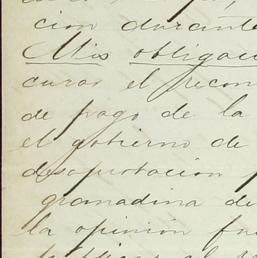 cion durante
Mis obligac
curar el recon
de pago de la
el gobierno de
desaprobacion
gramadina de
la opinion